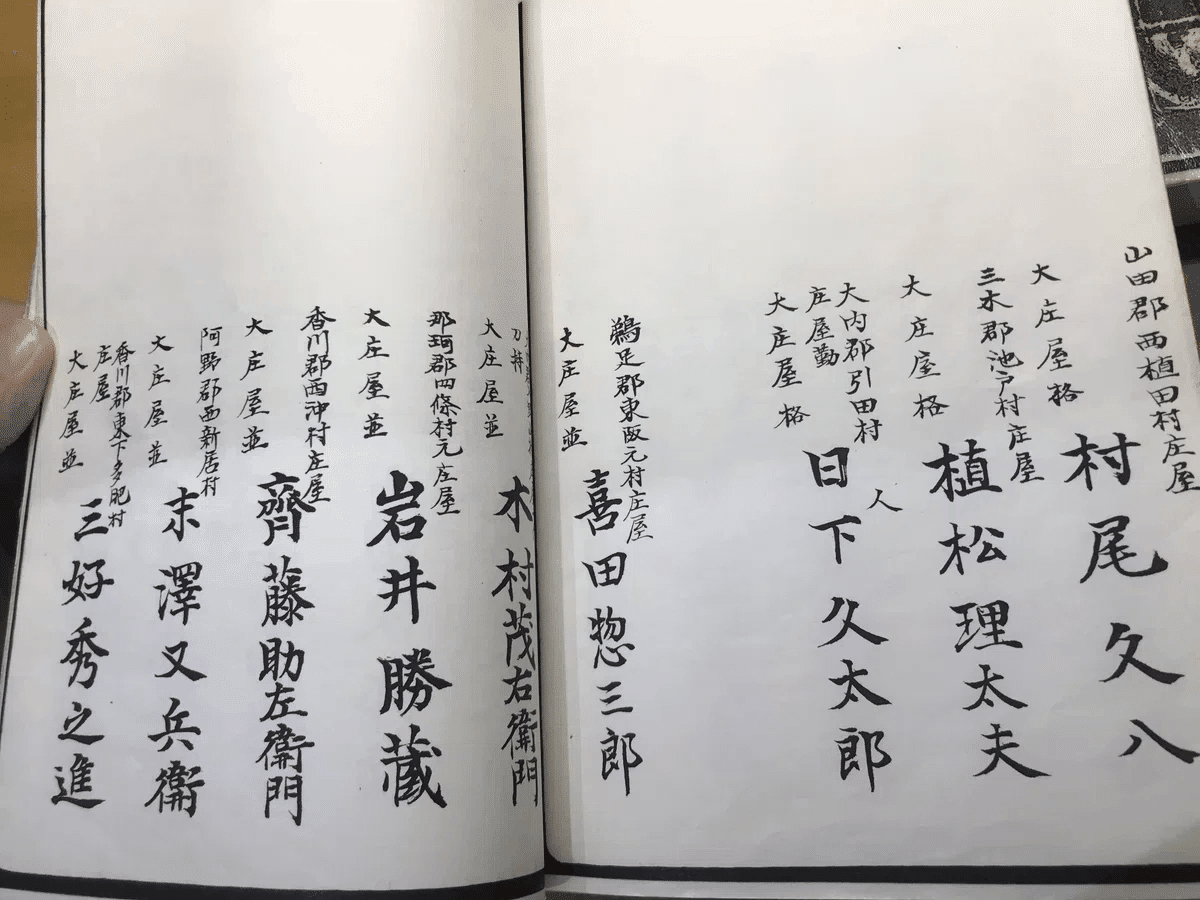 山田郡西植田村庄屋
村尾久八
大庄屋格
三木郡池戸村庄屋
植松理太夫
大庄屋格
人
大内郡引田村
庄屋勤
日下久太郎
大庄屋格
鵜足郡東阪元村庄屋
喜田惣三郎
大庄屋並
木村茂右衛門
大庄屋並
那珂郡四條村元庄屋
岩井勝蔵
大庄屋並
香川郡西沖村庄屋
齊藤助左衛門
大庄屋並
阿野郡西新居村
末澤又兵衛
大庄屋並
香川郡東下多肥村
庄屋
三好秀之進
大庄屋並